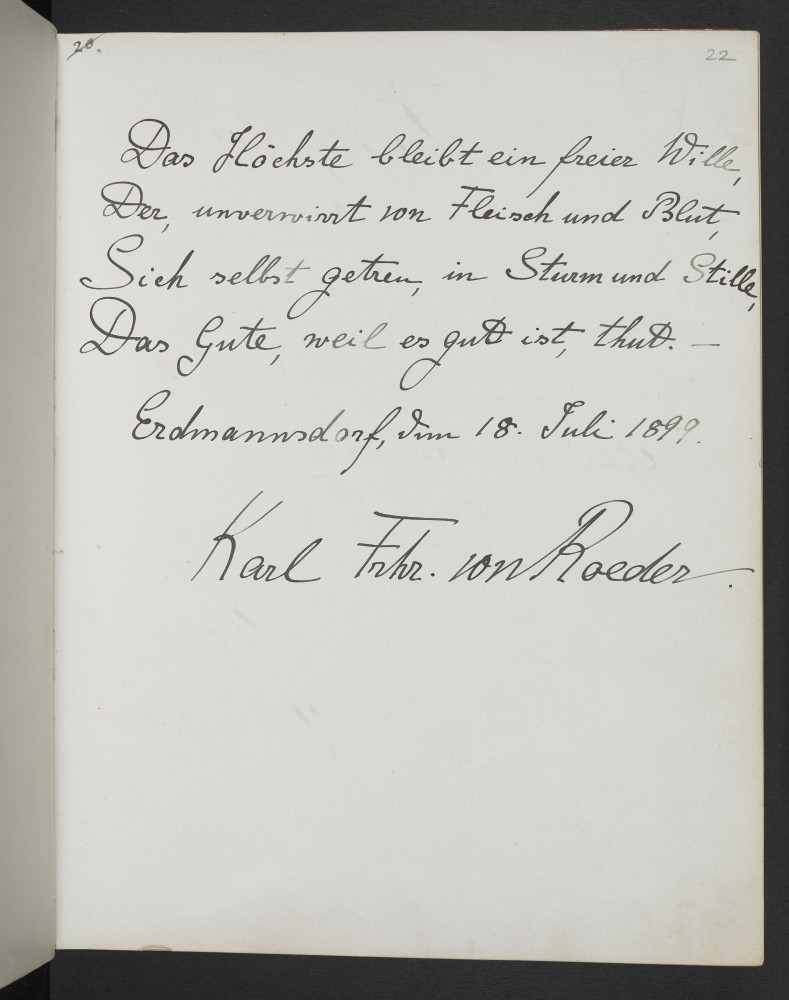 20.
22
Das Höchste bleibt ein freier Wille,
Der, unverwirrt von Fleisch und Blut,
Sich selbst getreu, in Sturm und Stille,
Das Gute, weil es gut ist, thut. —
Erdmannsdorf, den 18. Juli 1899.
Karl Frhr. von Roeder.